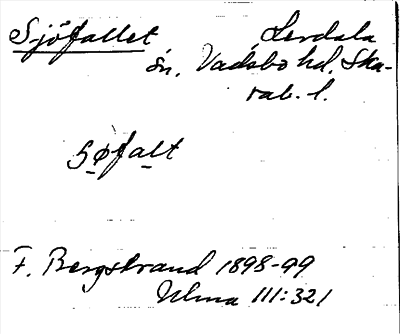 Sjöfallet Lerdala
sn. Vadsbo hd. Ska-
rab. l.
søfalt
F. Bergstrand 1898-99
Ulma 111:321